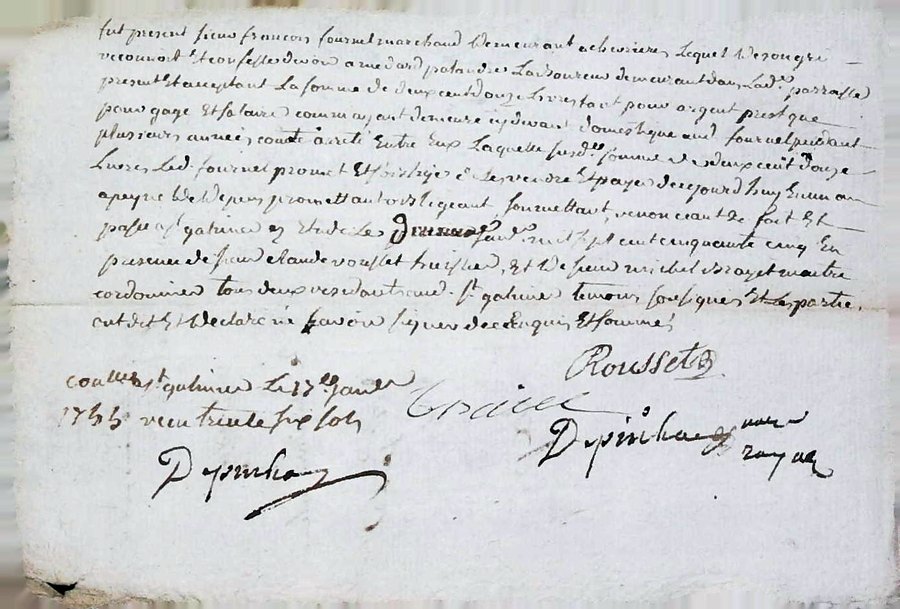 fut present sieur francois fournel marchand demeurant a chevrieres Lequel de son gré
reconnoit Et confesse devoir a medard palandre Laboureur demeurant dans Lad.e parroisse
present Et acceptant La somme de deux cent douze Livres tant pour argent presté que
pour gage Et salaire comme ayant demeuré cy devant domestique aud. fournel pendant
plusieurs années conte arreté Entre Eux Laquelle susd.e somme de deux cent douze
Livres Led. fournel promet Et s'oblige de Les rendre Et payer de ce jourd'huy En un an
a peyne de depens promettant obligeant soumettant, renonceant &c fait Et
passé a st galmier Le janv.r mil sept cent cinquante cinq En
presence de sieur claude rousset huissier, Et de sieur michel maitre
cordonnier tous deux residants aud. st galmier temoins soussignes Et Les parties
ont dit Et declaré ne savoir signer de ce Enquis Et sommés
Rousset
st galmier Le 17.e janvier
1755 recu trente six sols